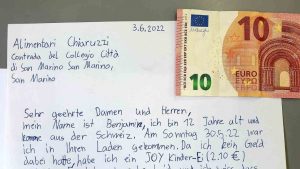 3.6.2022
Alimentari Chiaruzzi
Contrada del Collegio Città
di San Marino San Marino,
San Marino
Sehr geehrte Damen und Herren,
mein Name ist Benjamin, ich bin 12 Jahre alt und
komme aus der Schweiz. Am Sonntag 30.5.22 war
ich in Ihren Laden gekommen. Da ich kein Geld
dabei hatte, habe ich ein JOY Kinder-E (2.10 €)
10
10
EURO